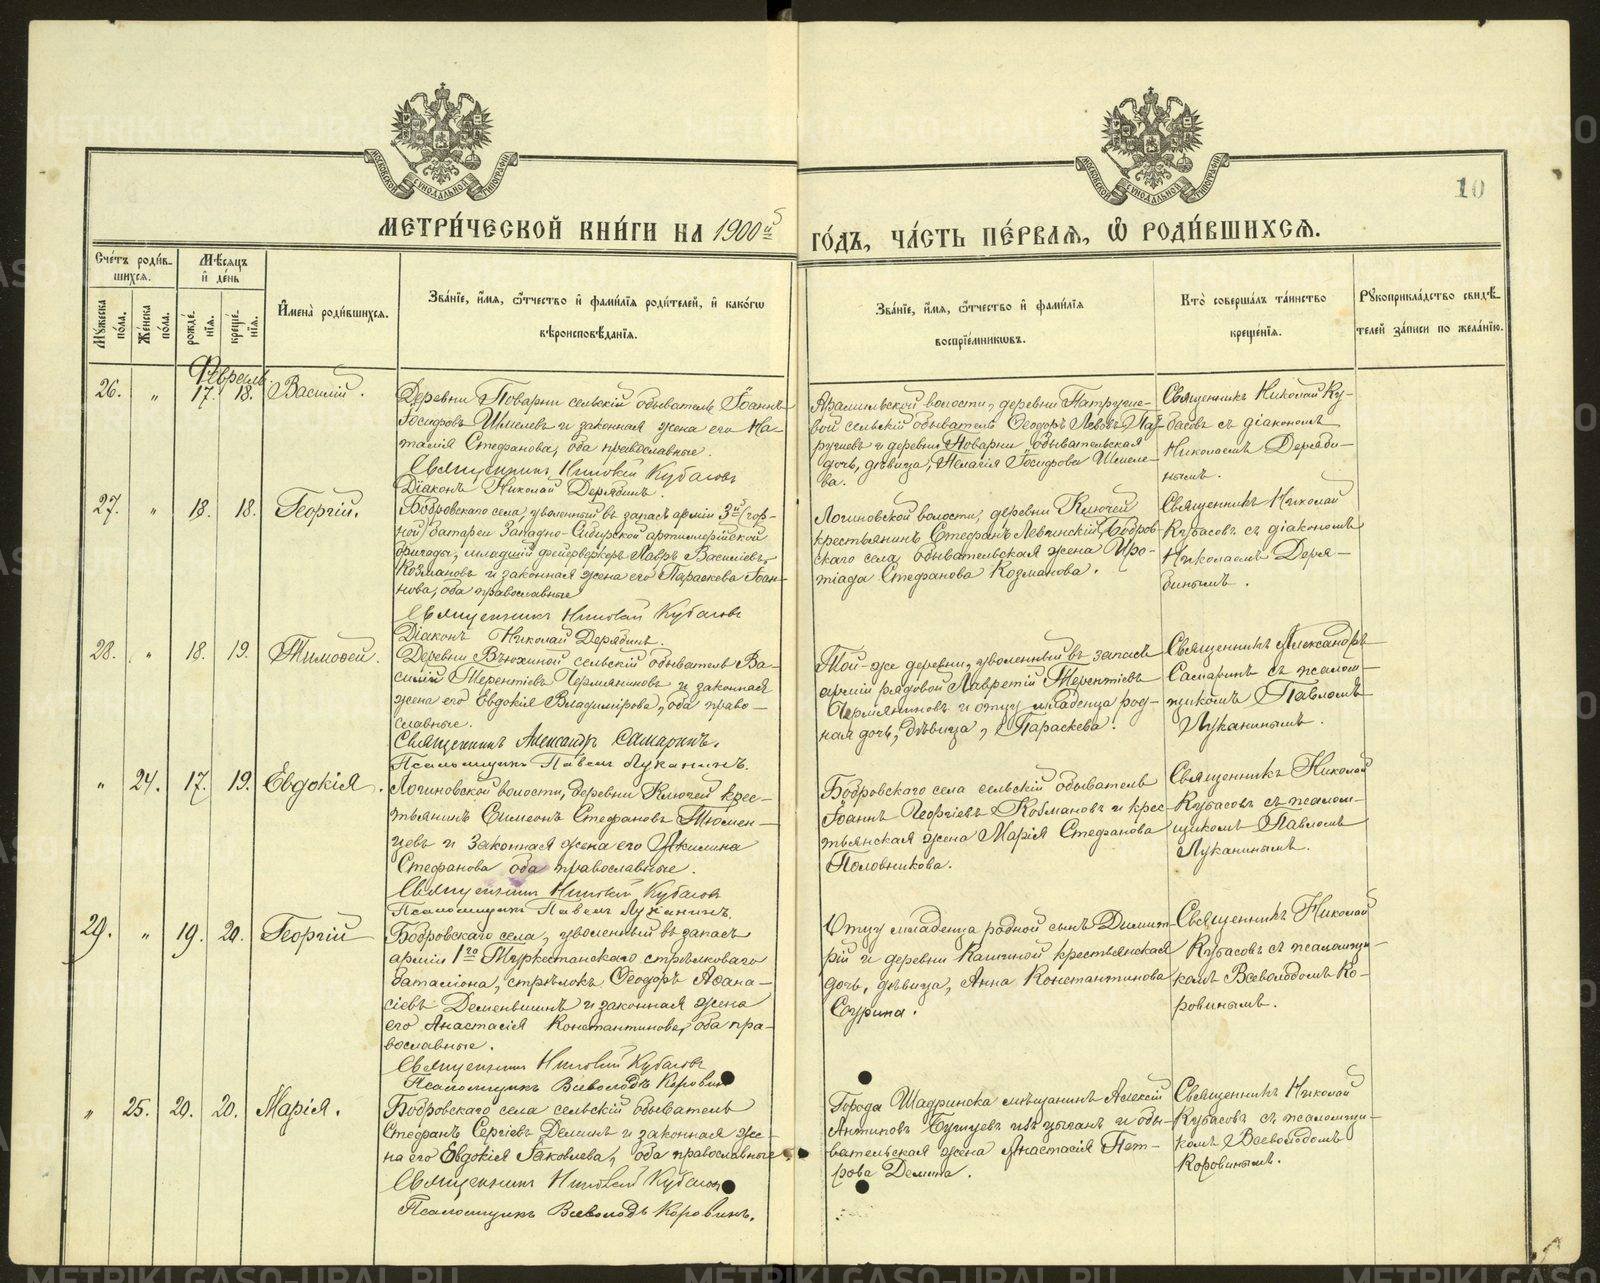 10
МЕТРИЧЕСКОЙ КНИГИ НА 1900й ГОДЪ, ЧАСТЬ ПЕРВАЯ, Ѿ РОДИВШИХСЯ.
Счетъ родившихся.
Мужеска пола.
Женска пола.
Мѣсяцъ и день
рожденія.
крещенія.
Имена родившихся.
Званіе, имя, отчество и фамилія родителей, и какого
вѣроисповѣданія.
Званіе, имя, отчество и фамилія
воспріемниковъ.
Кто совершалъ таинство
крещенія.
Рукоприкладство свидѣ-
телей записи по желанію.
Февраль.
26. „ 17. 18. Василій.
Деревни Поварни сельскій обыватель Іоаннъ
Іосифовъ Шмелевъ и законная жена его На-
талія Стефанова, оба православные.
Священникъ Николай Кубасовъ
Діаконъ Николай Дерябинъ.
волости, деревни Патруше-
вой сельскій обыватель Ѳеодоръ Львовъ Па-
рушевъ и деревни Поварни обывательская
дочь, дѣвица, Пелагія Іосифова Шмеле-
ва.
Священникъ Николай Ку-
басовъ съ діакономъ
Николаемъ Деряби-
нымъ.
27. „ 18. 18. Георгій.
Бобровскаго села, уволенный въ запасъ арміи 3й гор-
ной батареи Западно-Сибирской артиллерійской
бригады, младшій фейерверкеръ Лавръ Василіевъ
Козмановъ и законная жена его Параскева Іоан-
нова, оба православные.
Священникъ Николай Кубасовъ
Діаконъ Николай Дерябинъ.
Логиновской волости, деревни Ключей
крестьянинъ Стефанъ Бобров-
скаго села обывательская жена
Стефанова Козманова.
Священникъ Николай
Кубасовъ съ діакономъ
Николаемъ Деря-
бинымъ.
28. „ 18. 19. Тимоѳей.
Деревни Вьюхиной сельскій обыватель Ва-
силій Терентіевъ Чермяниновъ и законная
жена его Евдокія Владимірова, оба право-
славные.
Священникъ Александръ Самаринъ.
Псаломщикъ Павелъ Луканинъ.
Той-же деревни, уволенный въ запасъ
арміи рядовой Лаврентій Терентіевъ
Чермяниновъ и отцу младенца род-
ная дочь, дѣвица, Параскева.
Священникъ Александръ
Самаринъ съ псалом-
щикомъ Павломъ
Луканинымъ.
„ 24. 17. 19. Евдокія.
Логиновской волости, деревни Ключей крес-
тьянинъ Симеонъ Стефановъ Тюмен-
цевъ и законная жена его Акилина
Стефанова оба православные.
Священникъ Николай Кубасовъ
Псаломщикъ Павелъ Луканинъ.
Бобровскаго села сельскій обыватель
Іоаннъ Георгіевъ Козмановъ и крес-
тьянская жена Марія Стефанова
Половникова.
Священникъ Николай
Кубасовъ съ псалом-
щикомъ Павломъ
Луканинымъ.
29. „ 19. 20. Георгій
Бобровскаго села, уволенный въ запасъ
арміи 1го Туркестанскаго стрѣлковаго
баталіона, стрѣлокъ Ѳеодоръ Аѳана-
сіевъ Деменьшинъ и законная жена
его Анастасія Константинова, оба пра-
вославные.
Священникъ Николай Кубасовъ
Псаломщикъ Всеволодъ Коровинъ
Отцу младенца родной сынъ Димит-
рій и деревни Кашиной крестьянская
дочь, дѣвица, Анна Константинова
Сурина.
Священникъ Николай
Кубасовъ съ псаломщи-
комъ Всеволодомъ Ко-
ровинымъ.
„ 25. 20. 20. Марія.
Бобровскаго села сельскій обыватель
Стефанъ Сергіевъ Деминъ и законная же-
на его Евдокія Іаковлева, оба православные.
Священникъ Николай Кубасовъ
Псаломщикъ Всеволодъ Коровинъ.
Города Шадринска мѣщанинъ Алексій
Антиповъ изъ цыганъ и обы-
вательская жена Анастасія Пет-
рова Демина.
Священникъ Николай
Кубасовъ съ псаломщи-
комъ Всеволодомъ
Коровинымъ.